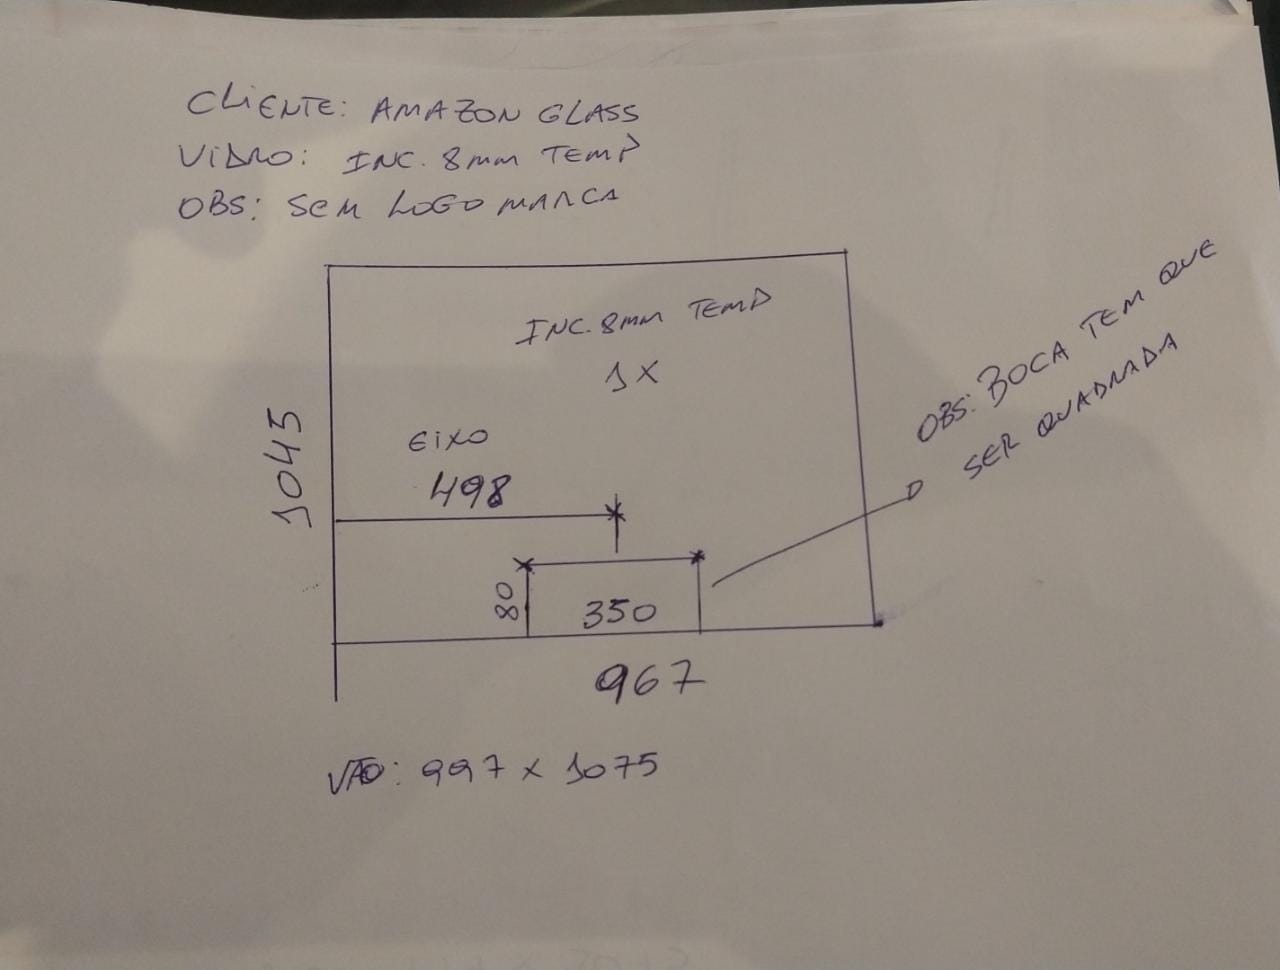 CLIENTE: AMAZON GLASS
VIDRO: INC. 8mm TEMP
OBS: SEM LOGO MARCA
INC. 8mm TEMP
1X
OBS: BOCA TEM QUE
SER QUADRADA
EIXO
498
1045
80
350
967
VÃO: 997 x 1075